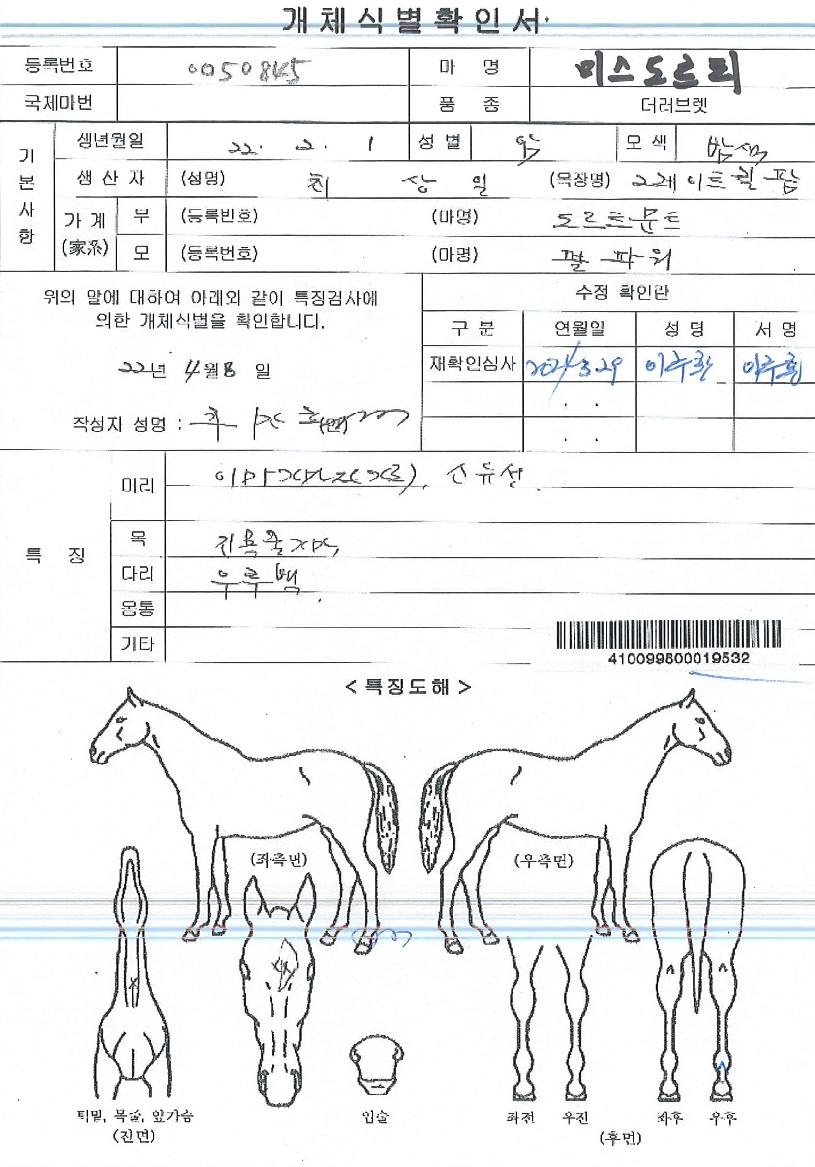 개체식별확인서
등록번호 0050845 마 명 미스도르리
국제마번 품 종 더러브렛
기본사항
생년월일 22. 2. 1 성 별 암 모 색 밤색
생 산 자 (성명) 최 상 일 (목장명)
가 계 (家系) 부 (등록번호) (마명) 도르트문트
모 (등록번호) (마명) 팔파워
위의 말에 대하여 아래와 같이 특징검사에
의한 개체식별을 확인합니다.
22년 4월 8 일
작성자 성명 :
수정 확인란
구 분 연월일 성 명 서 명
재확인심사 2024/3.29
. .
. .
특 징
머리
목
다리 우후백
몸통
기타
410099800019532
< 특징도해 >
(좌측면) (우측면)
턱밑, 목줄, 앞가슴
(전면)
입술
좌전 우전 좌후 우후
(후면)